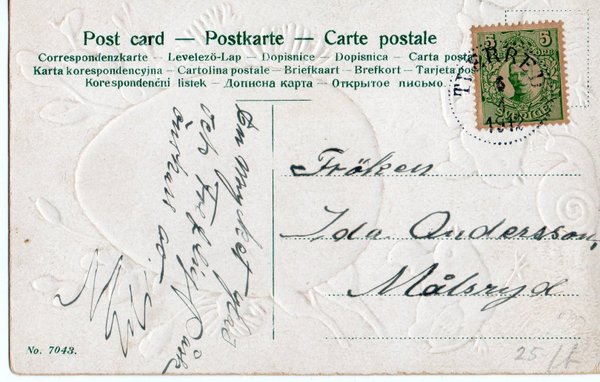 Post card — Postkarte — Carte postale
Correspondenzkarte – Levelezö-Lap – Dopisnice – Dopisnica – Carta posta
Karta korespondencyjna – Cartolina postale – Briefkaart – Brefkort – Tarjeta po
Korespondenční listek – Дописна карта – Открытое письмо.
5 5
ÖRE
1912
Fröken
Ida Andersson,
Målsryd
En mycket glad
och Fröjdig Påsk
önskas av
No. 7043.
25/f